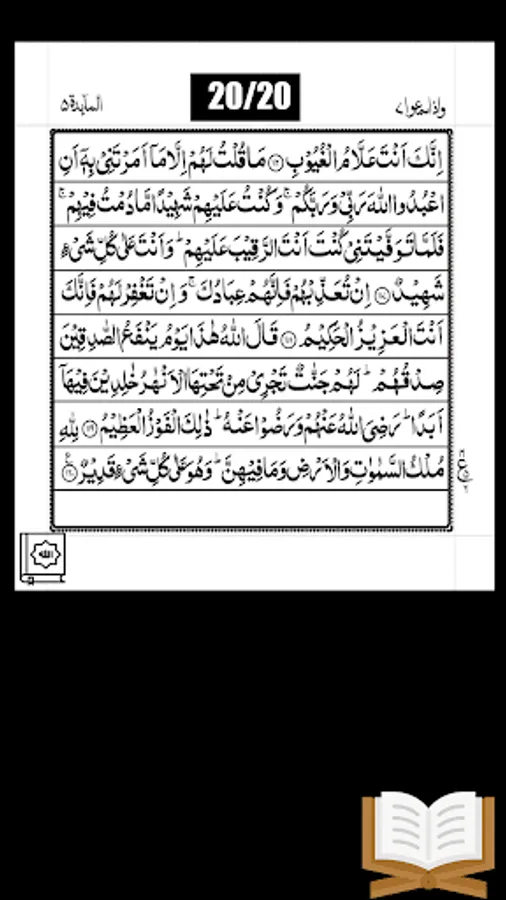 المآئدة ٥
20/20
واذا سمعوا ٧
اِنَّكَ اَنْتَ عَلَّامُ الْغُيُوْبِ ﴿١١٦﴾ مَا قُلْتُ لَهُمْ اِلَّا مَاۤ اَمَرْتَنِيْ بِهٖۤ اَنِ
اعْبُدُوا اللّٰهَ رَبِّيْ وَرَبَّكُمْ ۚ وَكُنْتُ عَلَيْهِمْ شَهِيْدًا مَّا دُمْتُ فِيْهِمْ ۚ
فَلَمَّا تَوَفَّيْتَنِيْ كُنْتَ اَنْتَ الرَّقِيْبَ عَلَيْهِمْ ؕ وَاَنْتَ عَلٰى كُلِّ شَيْءٍ
شَهِيْدٌ ﴿١١٧﴾ اِنْ تُعَذِّبْهُمْ فَاِنَّهُمْ عِبَادُكَ ۚ وَاِنْ تَغْفِرْ لَهُمْ فَاِنَّكَ
اَنْتَ الْعَزِيْزُ الْحَكِيْمُ ﴿١١٨﴾ قَالَ اللّٰهُ هٰذَا يَوْمُ يَنْفَعُ الصّٰدِقِيْنَ
صِدْقُهُمْ ؕ لَهُمْ جَنّٰتٌ تَجْرِيْ مِنْ تَحْتِهَا الْاَنْهٰرُ خٰلِدِيْنَ فِيْهَاۤ
اَبَدًا ؕ رَضِيَ اللّٰهُ عَنْهُمْ وَرَضُوْا عَنْهُ ؕ ذٰلِكَ الْفَوْزُ الْعَظِيْمُ ﴿١١٩﴾ لِلّٰهِ
مُلْكُ السَّمٰوٰتِ وَالْاَرْضِ وَمَا فِيْهِنَّ ؕ وَهُوَ عَلٰى كُلِّ شَيْءٍ قَدِيْرٌ ﴿١٢٠﴾
ع
الله